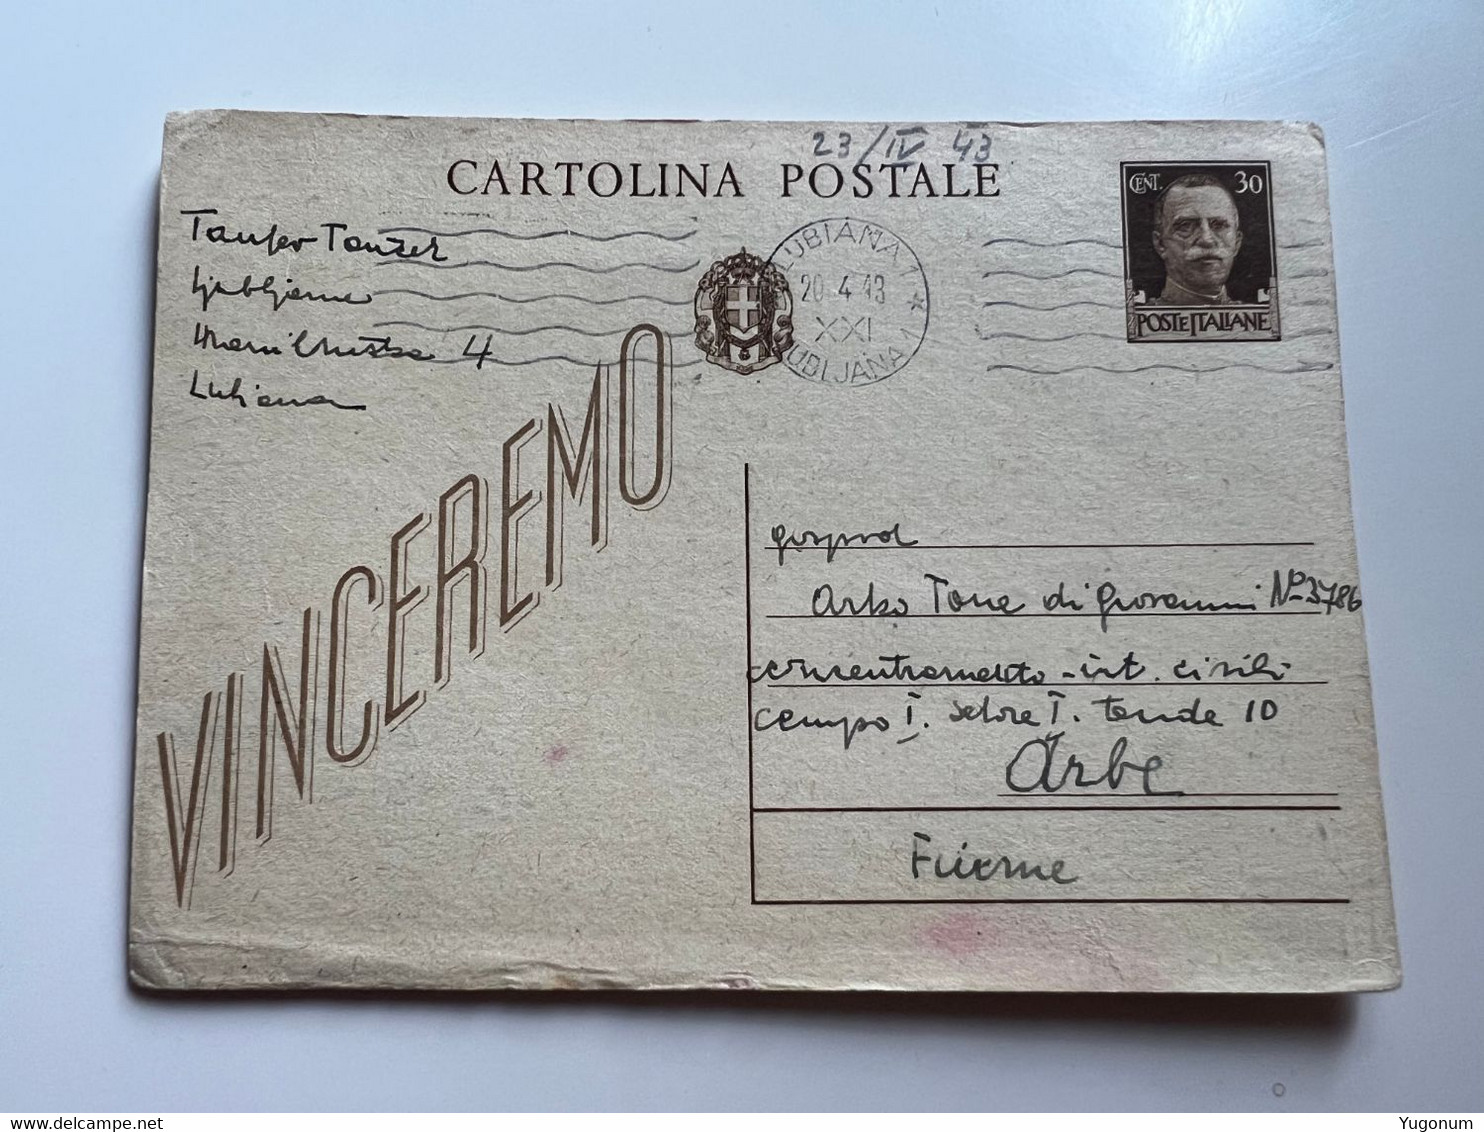 23/IV 43
CARTOLINA POSTALE
CENT. 30
POSTE ITALIANE
Tanzer
Ljubljana
4
Lubiana
LUBIANA 1
20.4.43
XXI
LJUBLJANA 1
VINCEREMO
gospod
Arko Tone di Giovanni No 3786
concentramento - int. civili
campo I. setore I. tenda 10
Arbe
Fiume
delcampe.net
Yugonum